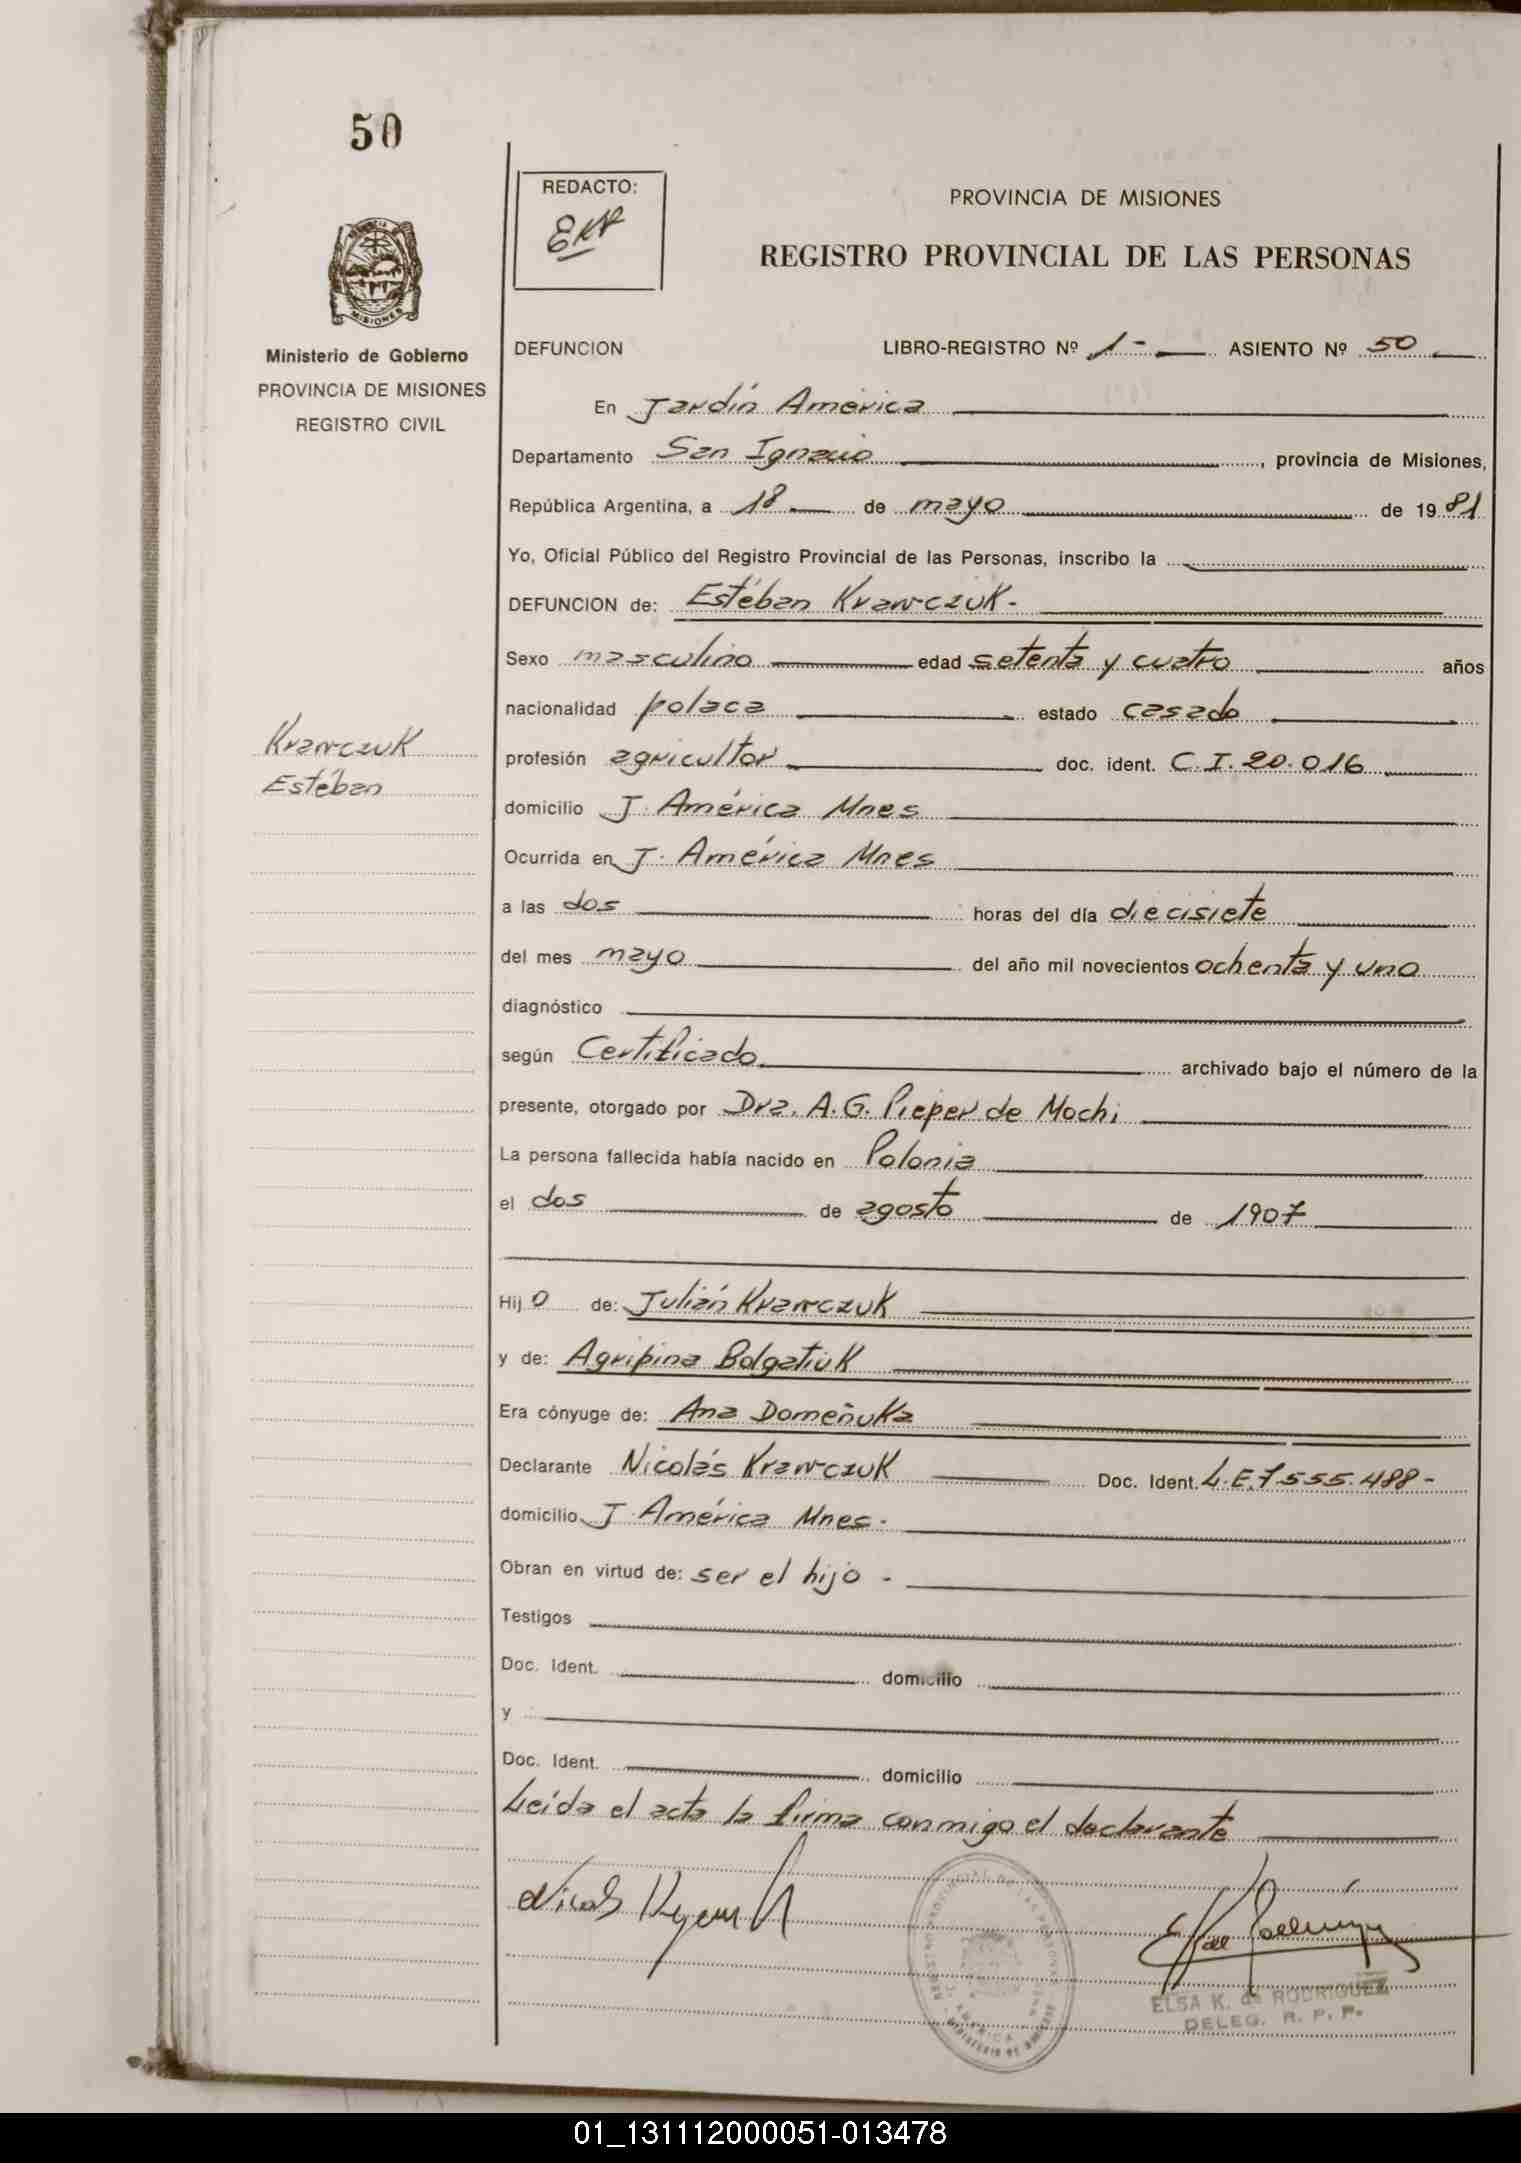 50
REDACTO:
EKR
PROVINCIA DE MISIONES
REGISTRO PROVINCIAL DE LAS PERSONAS
MISIONES
Ministerio de Gobierno
PROVINCIA DE MISIONES
REGISTRO CIVIL
DEFUNCION LIBRO-REGISTRO Nº 1- ASIENTO Nº 50
En Jardín América
Departamento San Ignacio, provincia de Misiones,
República Argentina, a 18 de mayo de 1981
Yo, Oficial Público del Registro Provincial de las Personas, inscribo la
DEFUNCION de: Estéban Krawczuk-
Sexo masculino edad setenta y cuatro años
nacionalidad polaca estado casado
Krawczuk
Estéban
profesión agricultor doc. ident. C.I. 20.016
domicilio J. América Mnes
Ocurrida en J. América Mnes
a las dos horas del día diecisiete
del mes mayo del año mil novecientos ochenta y uno
diagnóstico
según Certificado archivado bajo el número de la
presente, otorgado por Dra. A.G. Pieper de Mochi
La persona fallecida había nacido en Polonia
el dos de agosto de 1907
Hijo de: Julián Krawczuk
y de: Agripina Bolgatiuk
Era cónyuge de: Ana Domeñuka
Declarante Nicolás Krawczuk Doc. Ident. L.E. 7.555.488-
domicilio J. América Mnes.
Obran en virtud de: ser el hijo -
Testigos
Doc. Ident. domicilio
y
Doc. Ident. domicilio
Leída el acta la firma conmigo el declarante
ELSA K. de RODRIGUEZ
DELEG. R. P. P.
01_131112000051-013478